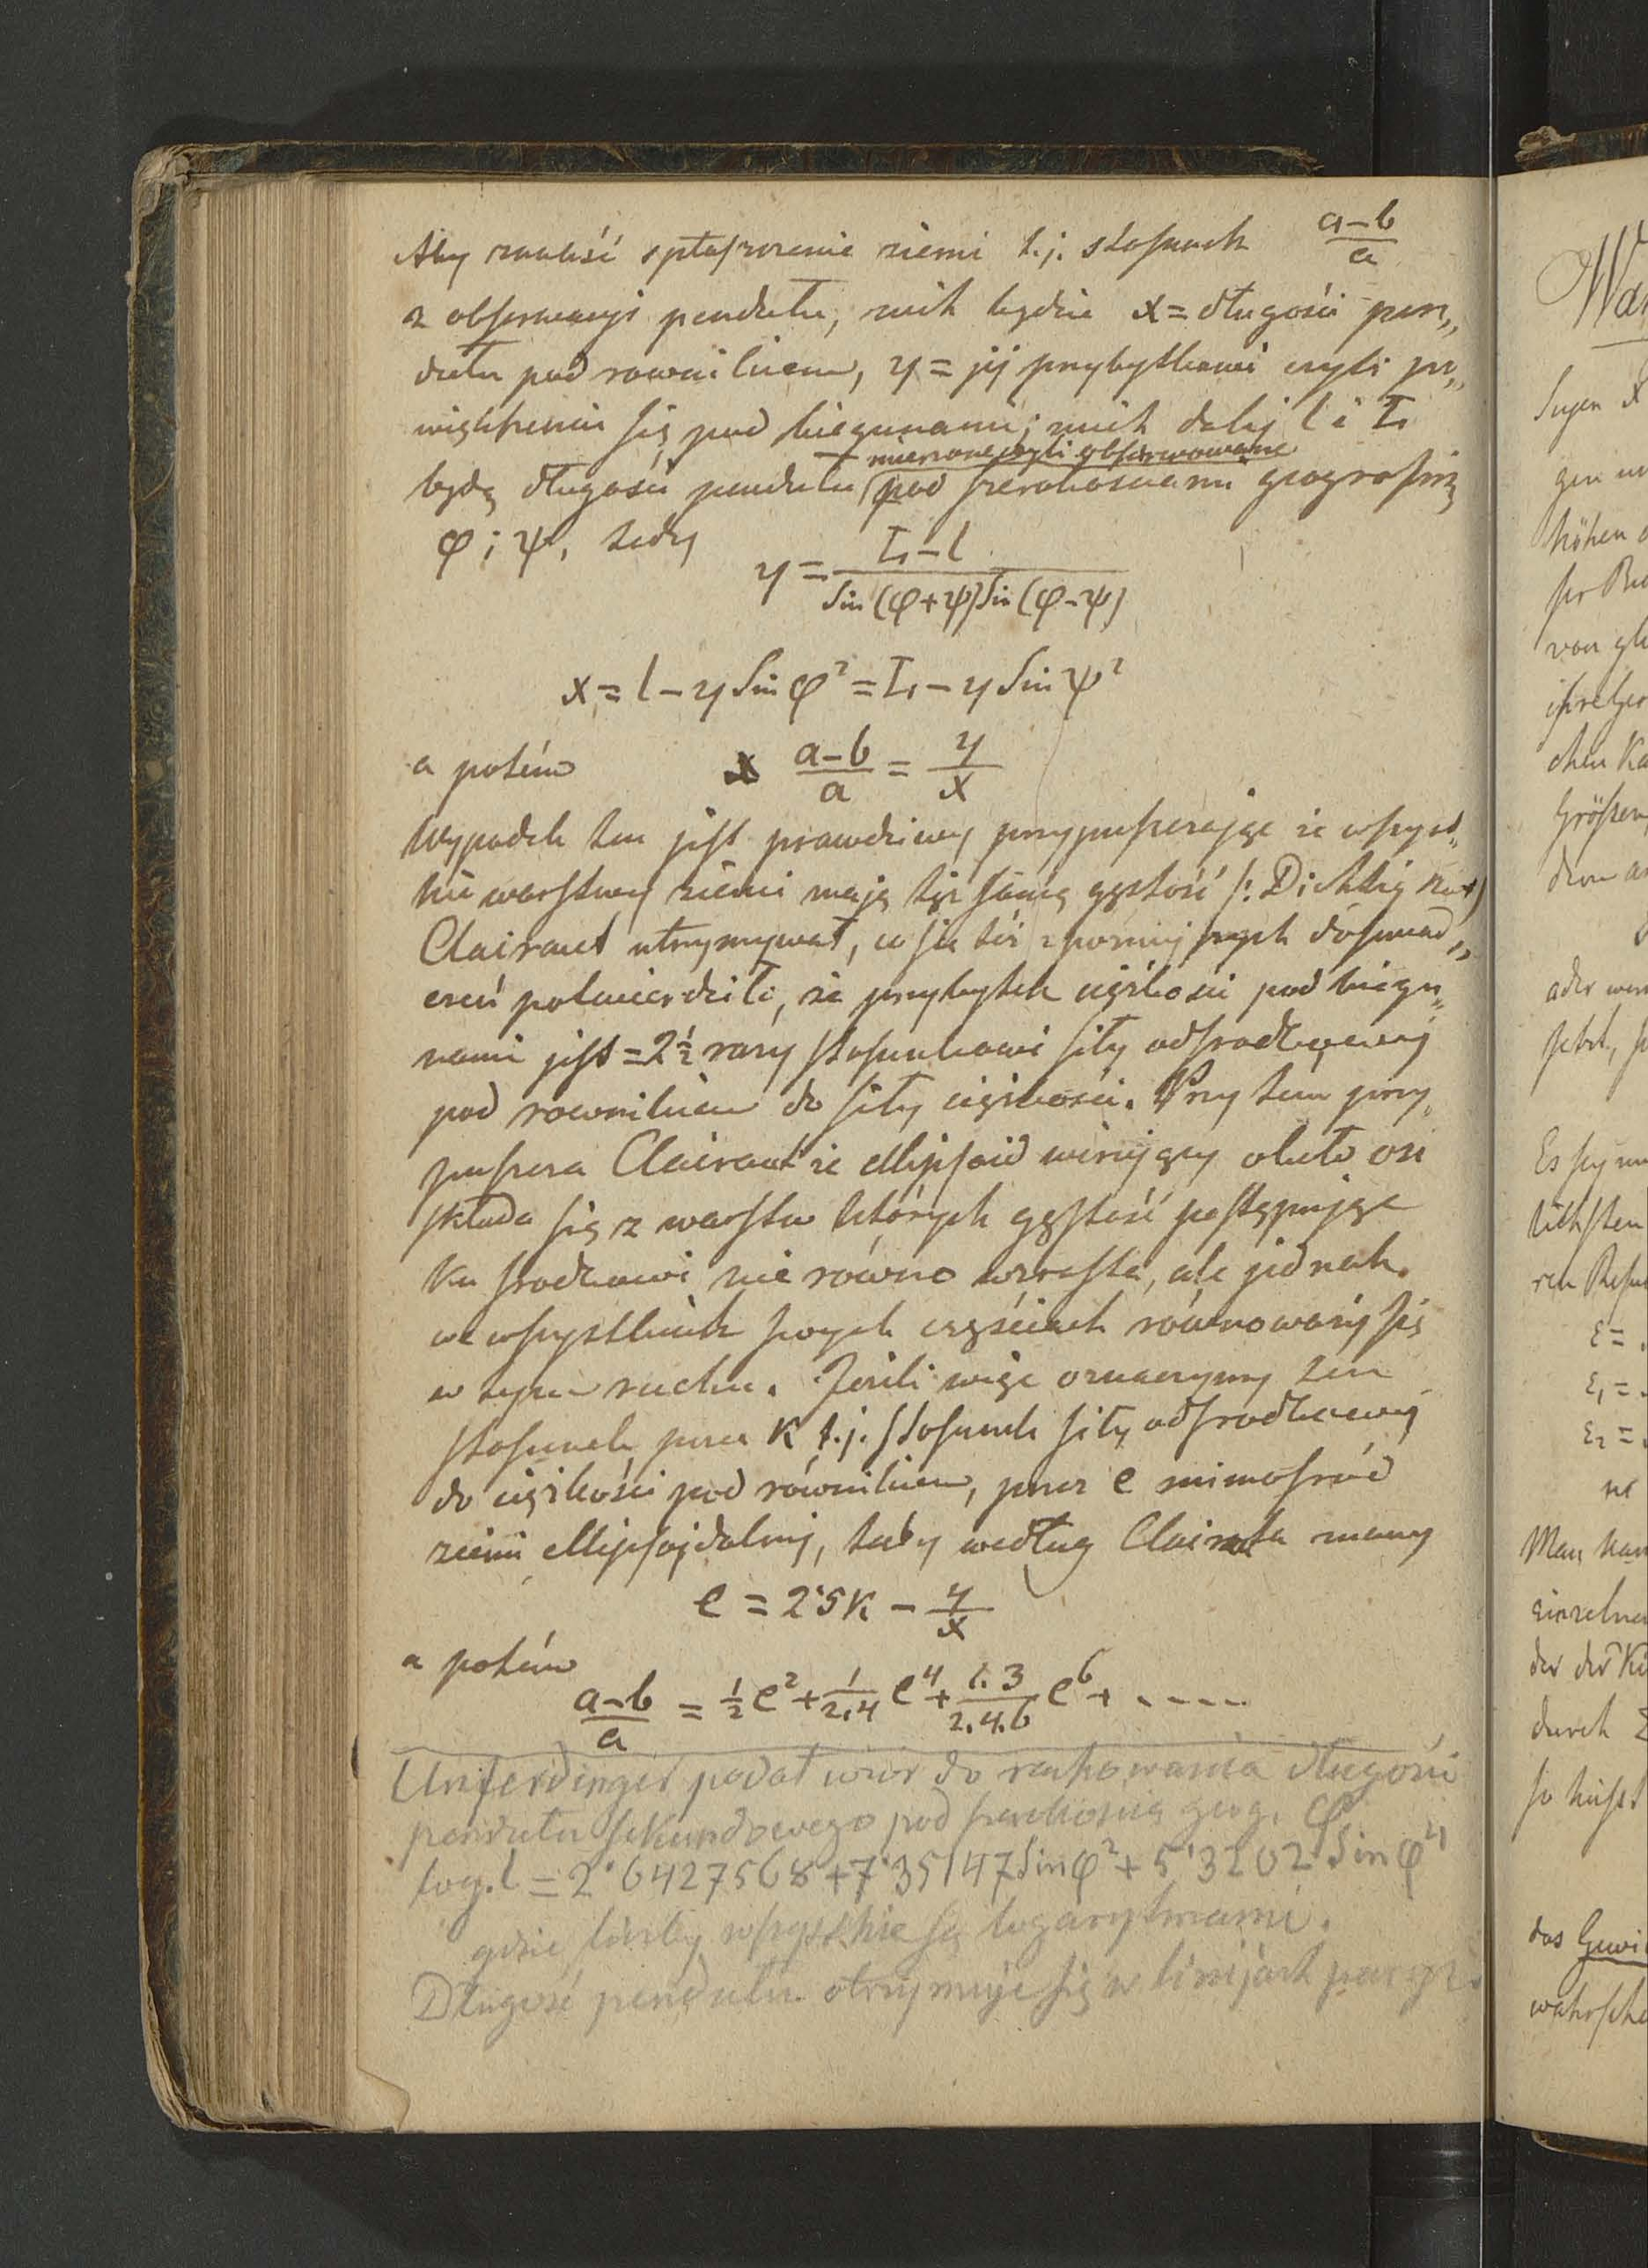 Aby znaleść spłaszczenie ziemi t.j. stosunek (a–b)/a
z obserwacyi pendułu, niech będzie x = długości pen„
dułu pod rownikiem, y = jej przybytkowi czyli po„
większeniu się pod biegunami; niech dalej l i L
mierzone czyli obserwowane
będą długości pendułu pod szerokosciami geograficzn
φ ; ψ, tedy
y = (L – l) / (Sin (φ+ψ) Sin (φ–ψ))
x = l – y Sin φ² = L – y Sin ψ²
a potém (a–b)/a = y/x
Wypadek ten jest prawdziwy przypuszczając że wszyst„
kie warstwy ziemi mają tęż samą gęstość /: Dichtigkeit)
Clairaut utrzymywał, co się też z poźniejszych doświad„
czeń potwierdziło, że przybytek ciężkości pod biegu„
nami jest = 2½ razy stosunkowi siły odśrodkowej
pod rownikiem do siły ciężkości. Przy tem przy„
puszcza Clairaut że ellipsoid wirujący około osi
składa się z warstw których gęstość postępując
ku środkowi nie równo wzrasta, ale jednak
we wszystkich swych częściach równoważy się
w tym ruchu. Jeżeli więc oznaczymy ten
stosunek przez K t.j. stosunek siły odśrodkowej
do ciężkości pod równikiem, przez e mimośród
ziemi ellipsojdalnej, tedy według Clairauta mamy
e = 2·5K – y/x
a potém
(a–b)/a = ½e² + 1/2.4 e⁴ + 1.3/2.4.6 e⁶ + - - - -
Unferdinger podał wzór do rachowania długości
pendułu sekundowego pod szerokością geog. φ
log. l = 2·6427568 + 7·35147 Sin φ² + 5·3202 Sin φ⁴
gdzie liczby wszystkie są logarytmami.
Długość pendułu otrzymuje się w linijach